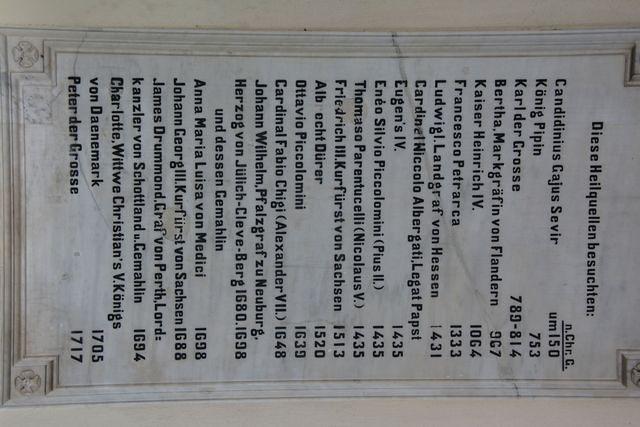 Diese Heilquellen besuchten:
n. Chr. G.
Candidinius Cajus Sevir um 150
König Pipin 753
Karl der Grosse 789-814
Bertha, Markgräfin von Flandern 967
Kaiser Heinrich IV. 1064
Francesco Petrarca 1333
Ludwig I. Landgraf von Hessen 1431
Cardinal Niccolo Albergati, Legat Papst
Eugen's IV. 1435
Enéo Silvio Piccolomini (Pius II.) 1435
Thomaso Parentucelli (Nicolaus V.) 1435
Friedrich III. Kurfürst von Sachsen 1513
Alb echt Dürer 1520
Ottavio Piccolomini 1639
Cardinal Fabio Chigi (Alexander VII.) 1648
Johann Wilhelm, Pfalzgraf zu Neuburg,
Herzog von Jülich-Cleve-Berg 1680. 1698
und dessen Gemahlin
Anna Maria Luisa von Medici 1698
Johann Georg III. Kurfürst von Sachsen 1688
James Drummond, Graf von Perth, Lord=
kanzler von Schottland u. Gemahlin 1694
Charlotte, Wittwe Christian's V. Königs
von Daenemark 1705
Peter der Grosse 1717